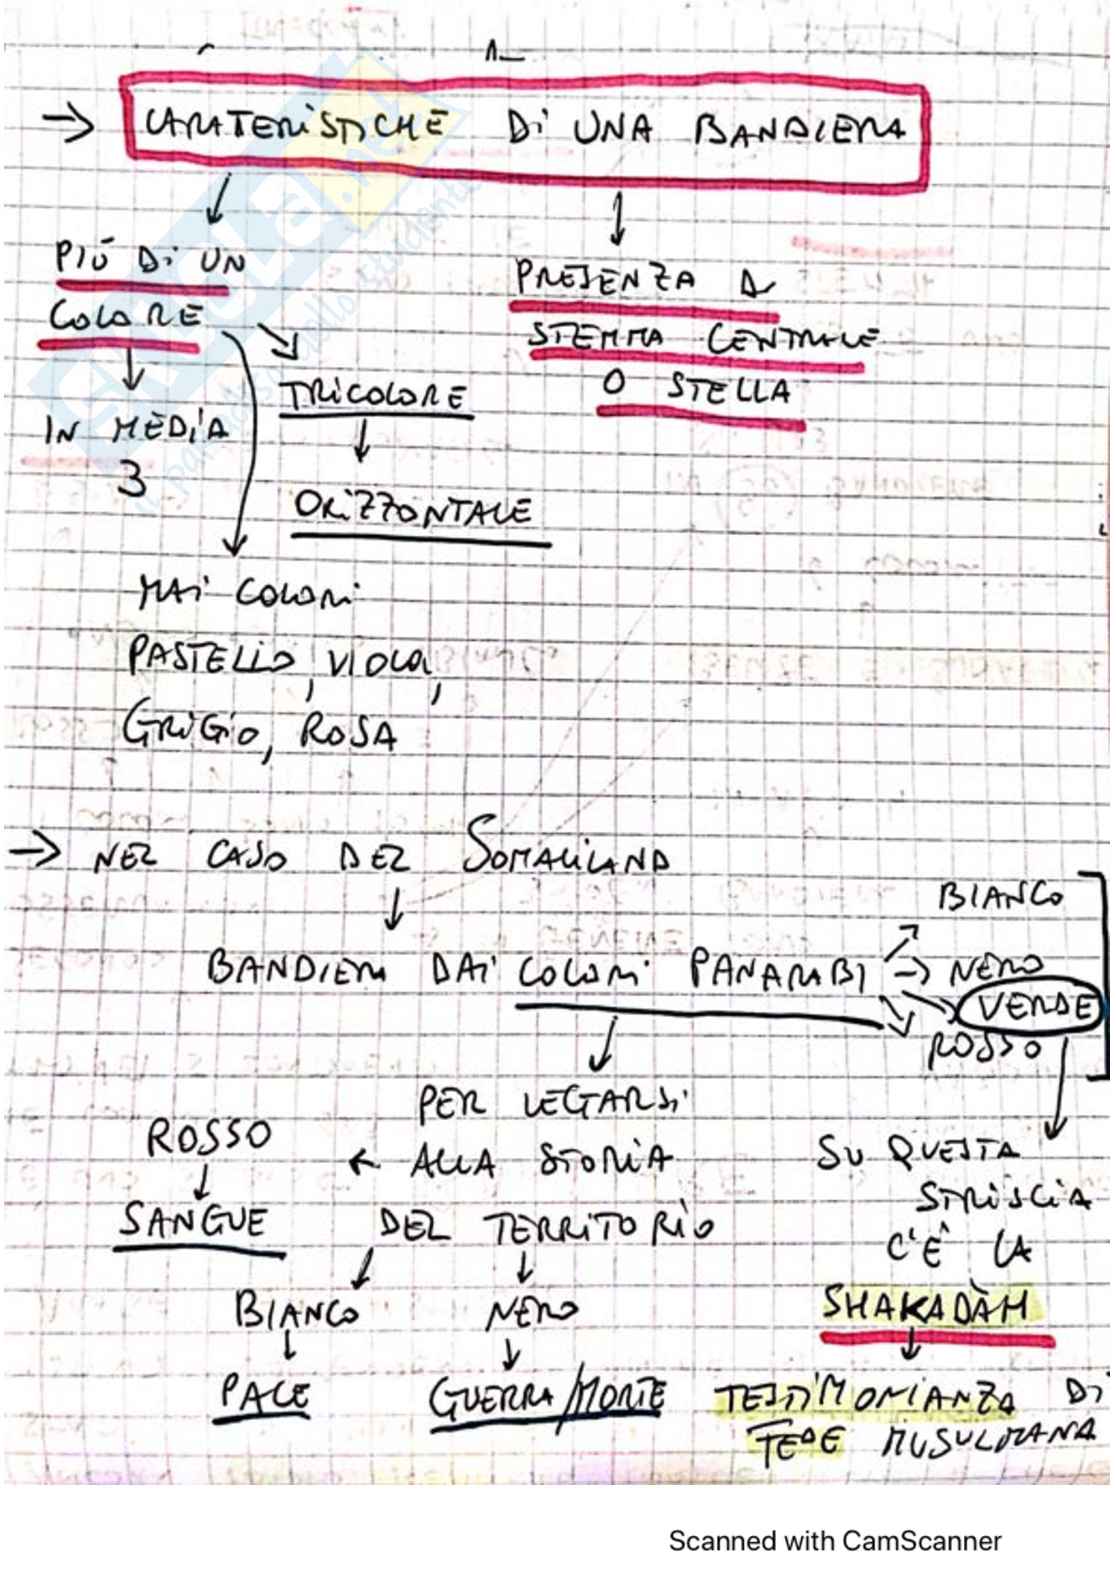 → CARATERISTICHE DI UNA BANDIERA
PIÙ DI UN
COLORE
IN MEDIA
3
TRICOLORE
ORIZZONTALE
MAI COLORI
PASTELLO, VIOLA,
GRIGIO, ROSA
PRESENZA DI
STEMMA CENTRALE
O STELLA
→ NEL CASO DEL SOMALILAND
BANDIERA DAI COLORI PANARABI
BIANCO
NERO
VERDE
ROSSO
PER LEGARSI
ALLA STORIA
DEL TERRITORIO
ROSSO
SANGUE
BIANCO
PACE
NERO
GUERRA/MORTE
SU QUESTA
STRISCIA
C'È LA
SHAKADÀH
TESTIMONIANZA DI
FEDE MUSULMANA
Scanned with CamScanner